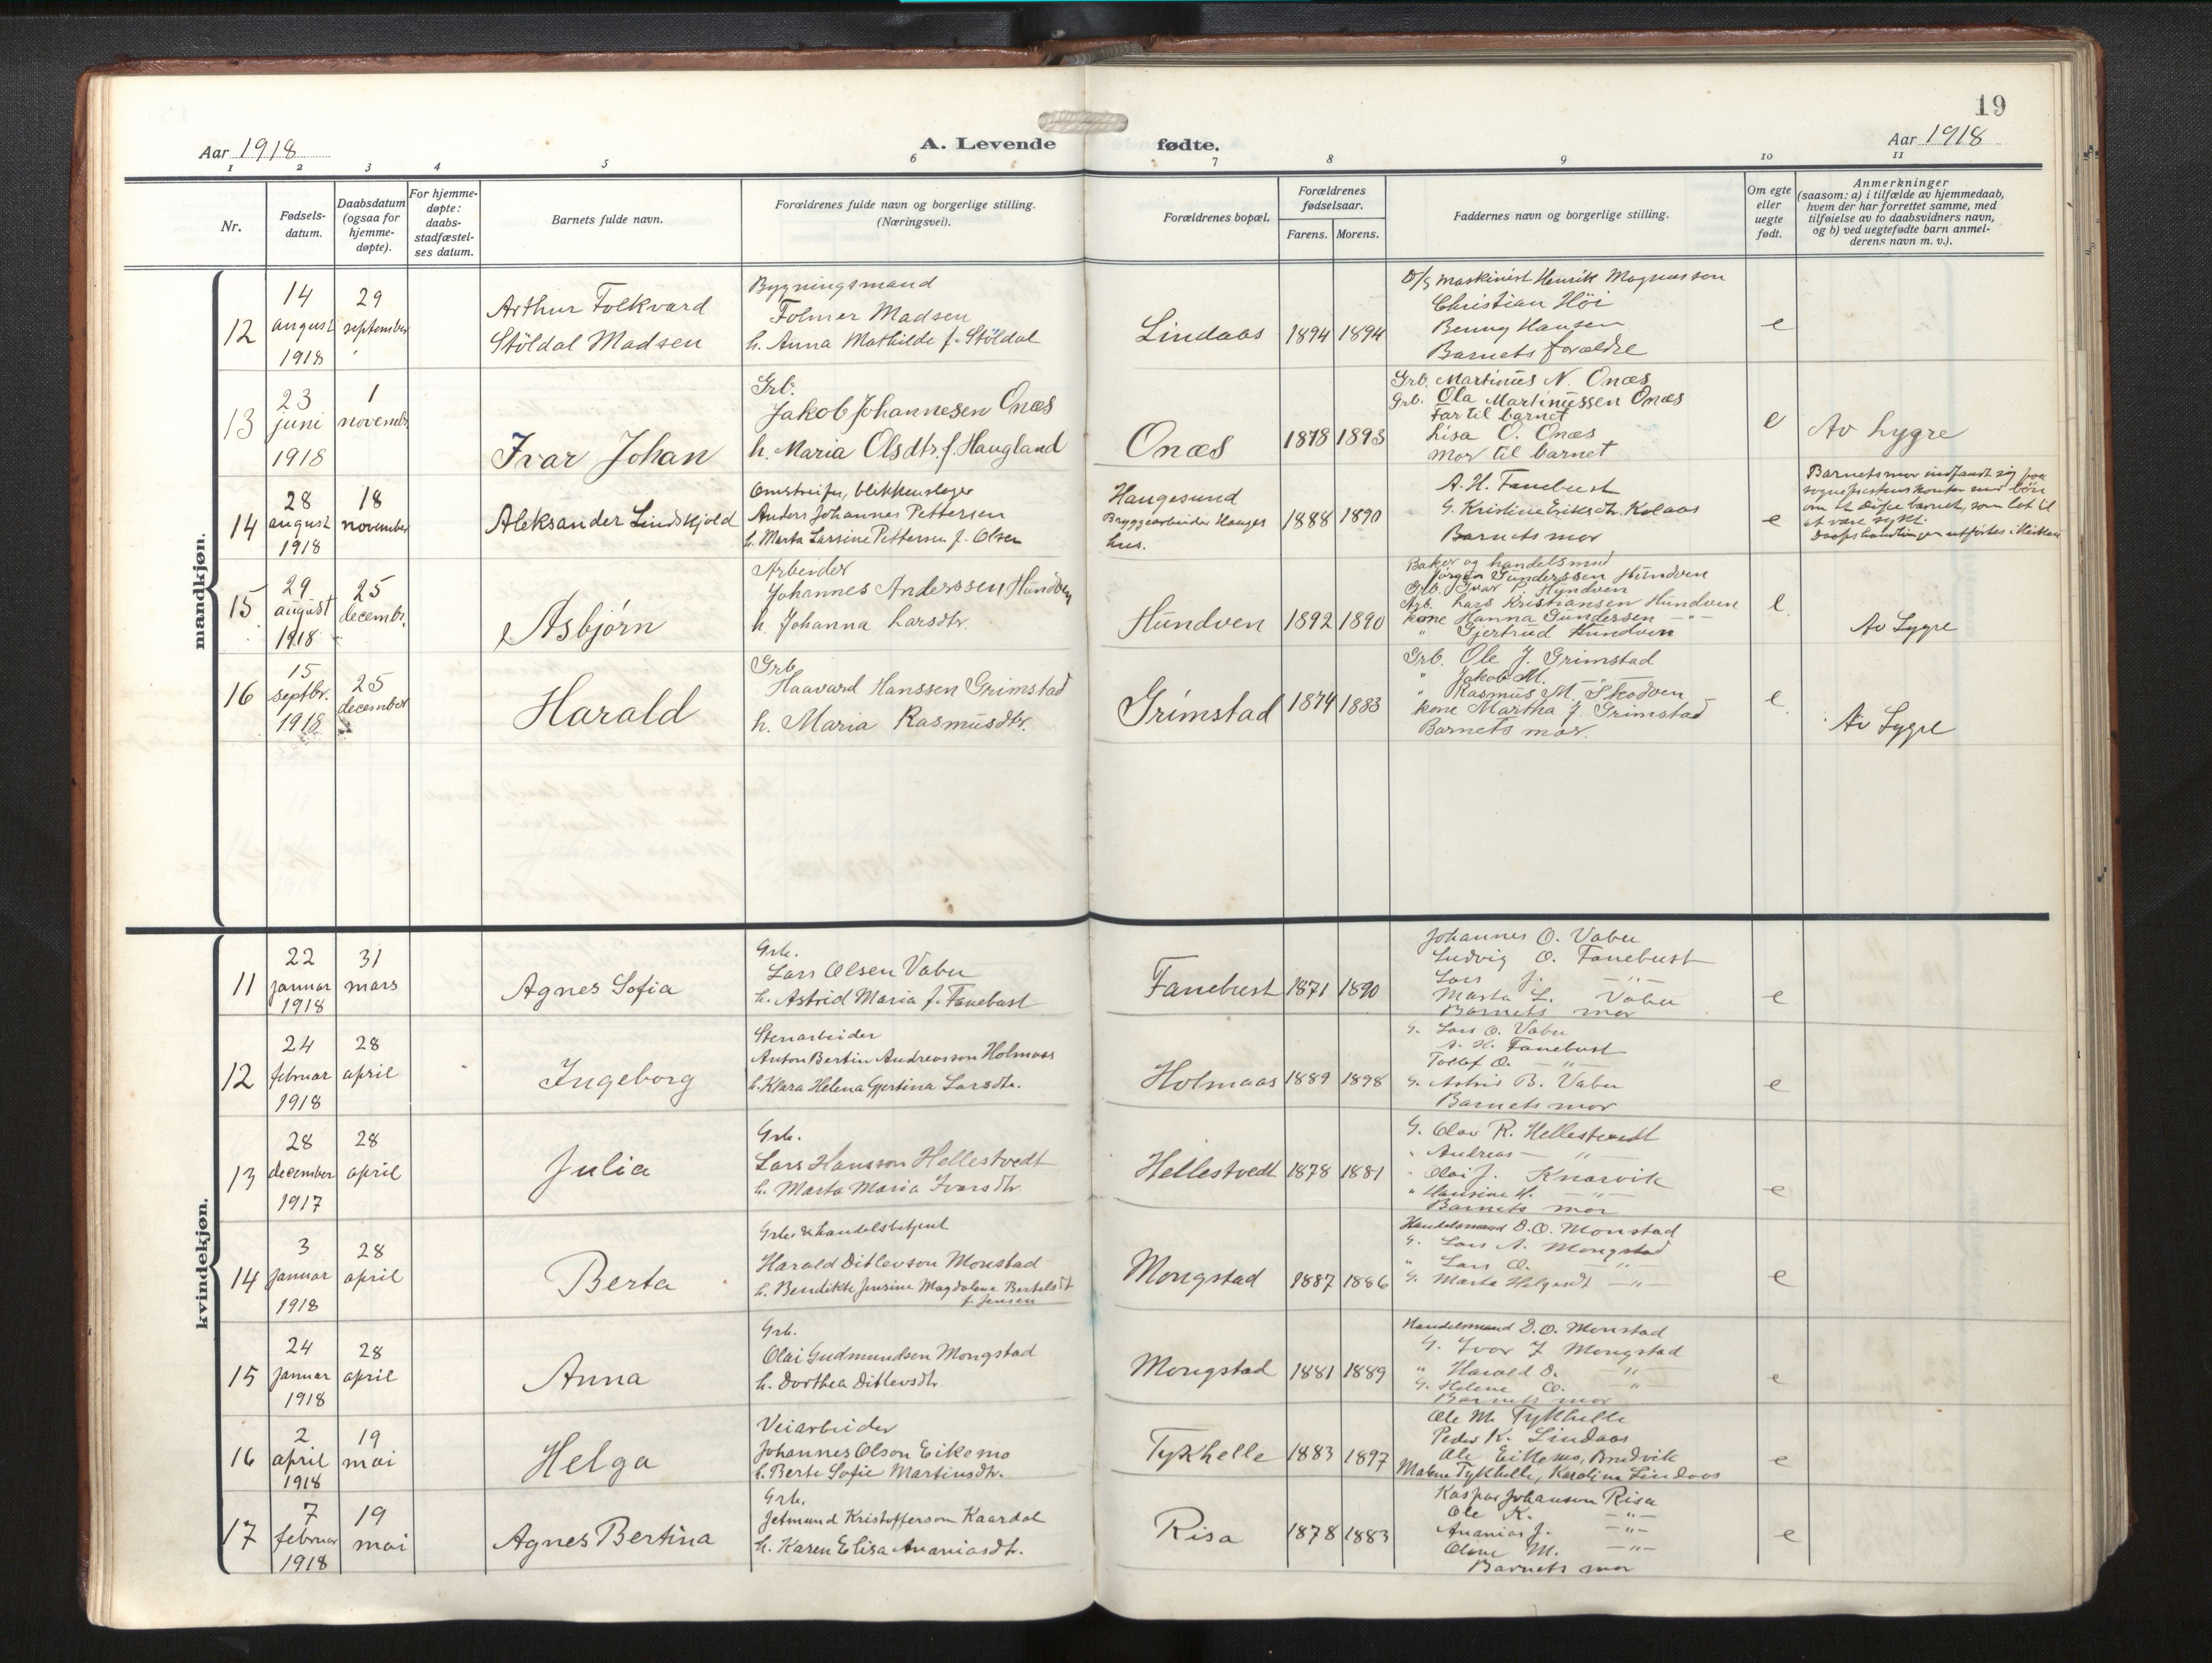 19
Aar 1918
A. Levende fødte.
Aar 1918
1 2 3 4 5 6 7 8 9 10 11
Nr.
Fødsels-
datum.
Daabsdatum
(ogsaa for
hjemme-
døpte).
For hjemme-
døpte:
daabs-
stadfæstel-
ses datum.
Barnets fulde navn.
Forældrenes fulde navn og borgerlige stilling.
(Næringsvei).
Forældrenes bopæl.
Forældrenes
fødselsaar.
Farens. Morens.
Faddernes navn og borgerlige stilling.
Om egte
eller
uegte
født.
Anmerkninger
(saasom: a) i tilfælde av hjemmedaab,
hvem der har forrettet samme, med
tilføielse av to daabsvidners navn,
og b) ved uegtefødte barn anmel-
derens navn m. v.).
mandkjøn.
12
14
august
1918
29
september
Arthur Folkvard
Stöldal Madsen
Bygningsmand
Folmer Madsen
h. Anna Mathilde f. Stöldal
Lindaas
1894 1894
D/S maskinist Henrik Magnussen
Christian Höi
Benny Hansen
Barnets forældre
e
13
23
juni
1918
1
novembr.
Ivar Johan
Grb.
Jakob Johannesen Onæs
h. Maria Olsdtr. f. Haugland
Onæs
1878 1893
Grb. Martinus N. Onæs
Grb. Ola Martinussen Onæs
Far til barnet
Lisa O. Onæs
Mor til barnet
e
Av Lygre
14
28
august
1918
18
november
Aleksander Lindskjold
Omstreifer, blikkenslager
Anders Johannes Pettersen
h. Marta Larsine Pettersen f. Olsen
Haugesund
Bryggearbeider Hauges
hus.
1888 1890
A. H. Fanebust
G. Kristine Eriksdtr. Kolaas
Barnets mor
e
Barnets mor indfandt sig paa
sogneprestens kontor med bön
om at döpe barnet, som lot til
at være sykt.
Daapshandlingen utførtes i kirken
15
29
august
1918
25
decembr.
Asbjørn
Arbeider
Johannes Anderssen Hundven
h. Johanna Larsdtr.
Hundven
1892 1890
Baker og handelsmnd
Jørgen Gunderssen Hundven
Grb. Ivar P. Hundven
Arb. Lars Kristiansen Hundven
kone Hanna Gundersen —"—
" Gjertrud Hundven
e
Av Lygre
16
15
septbr.
1918
25
december
Harald
Grb.
Haavard Hanssen Grimstad
h. Maria Rasmusdtr.
Grimstad
1874 1883
Grb. Ole J. Grimstad
" Jakob M. —"—
" Rasmus M. Skodven
kone Martha J. Grimstad
Barnets mor.
e
Av Lygre
kvindekjøn.
11
22
januar
1918
31
mars
Agnes Sofia
Grb.
Lars Olsen Vabu
h. Astrid Maria f. Fanebust
Fanebust
1871 1890
Johannes O. Vabu
Ludvig O. Fanebust
Lars J. —"—
Marta L. Vabu
Barnets mor
e
12
24
februar
1918
28
april
Ingeborg
Stenarbeider
Anton Bertin Andreasson Holmaas
h. Klara Helena Gjertina Larsdtr.
Holmaas
1889 1898
G. Lars O. Vabu
A. H. Fanebust
Tollef O. —"—
G. Astrid B. Vabu
Barnets mor
e
13
28
december
1917
28
april
Julia
Grb.
Lars Hansson Hellestvedt
h. Marta Maria Ivarsdtr.
Hellestvedt
1878 1881
G. Olav R. Hellestvedt
" Andreas — "—
" Olai J. Knarvik
" Hansine H. —"—
Barnets mor
e
14
3
januar
1918
28
april
Berta
Grb. & handelsbetjent
Harald Ditlevson Monstad
h. Bendikte Jensine Magdalena Bertelsdt
f. Jensen
Mongstad
1887 1886
Handelsmand D. O. Monstad
G. Lars A. Mongstad
" Lars O. —"—
G. Marta Helgesdt —"—
e
15
24
januar
1918
28
april
Anna
Grb.
Olai Gudmundsen Mongstad
h. Dorthea Ditlevsdtr.
Mongstad
1881 1889
Handelsmand D. O. Monstad
G. Ivar J Mongstad
" Harald D. "
G. Helene O. "
Barnets mor
e
16
2
april
1918
19
mai
Helga
Veiarbeider
Johannes Olson Eikemo
h. Berte Sofie Martinsdtr.
Tykhelle
1883 1897
Ole M. Tykhelle
Peder K. Lindaas
Ole Eikemo, Bredvik
Malene Tykhelle, Karoline Lindaas
e
17
7
februar
1918
19
mai
Agnes Bertina
Grb.
Jetmund Kristofferson Kaardal
h. Karen Elisa Ananiasdtr.
Risa
1878 1883
Kaspar Johanson Risa
Ole K. —"—
Ananias J. —"—
Oline M. —"—
Barnets mor
e